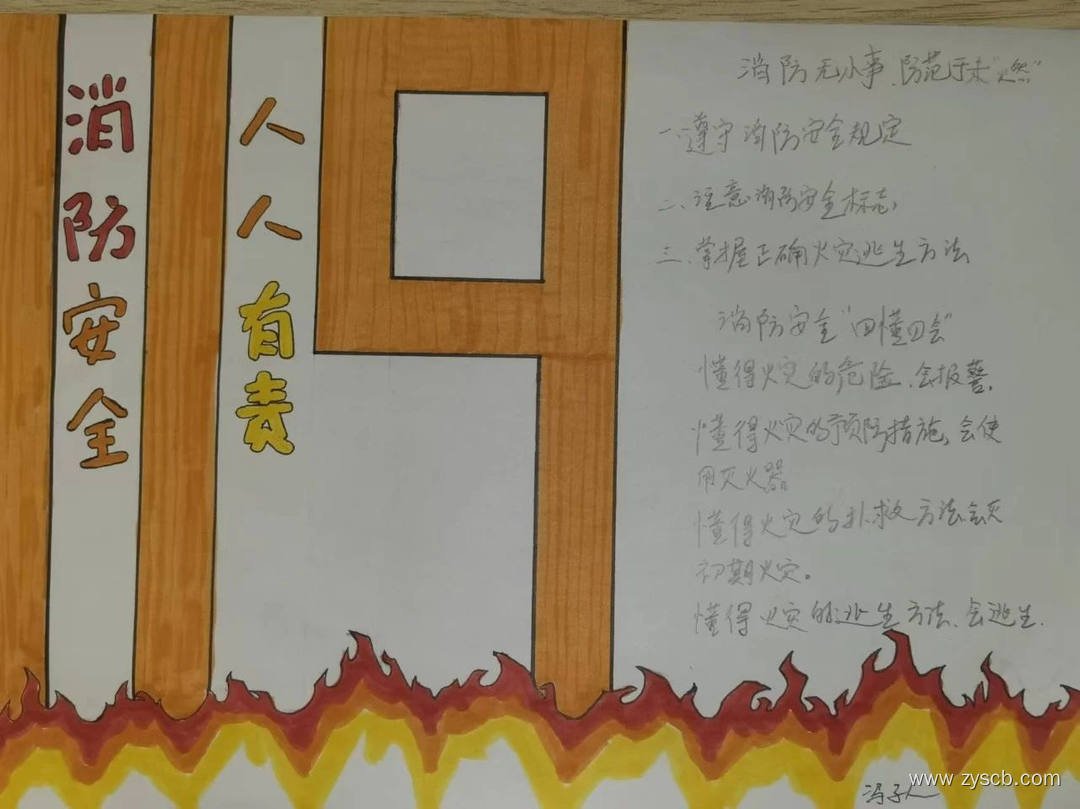 消防安全
人人有责
119
消防无小事、防范于未“火然”
一、遵守消防安全规定
二、注意消防安全标志,
三、掌握正确火灾逃生方法
消防安全“四懂四会”
懂得火灾的危险、会报警,
懂得火灾的预防措施,会使
用灭火器
懂得火灾的扑救方法会灭
初期火灾。
懂得火灾的逃生方法、会逃生.
www.zyscb.com